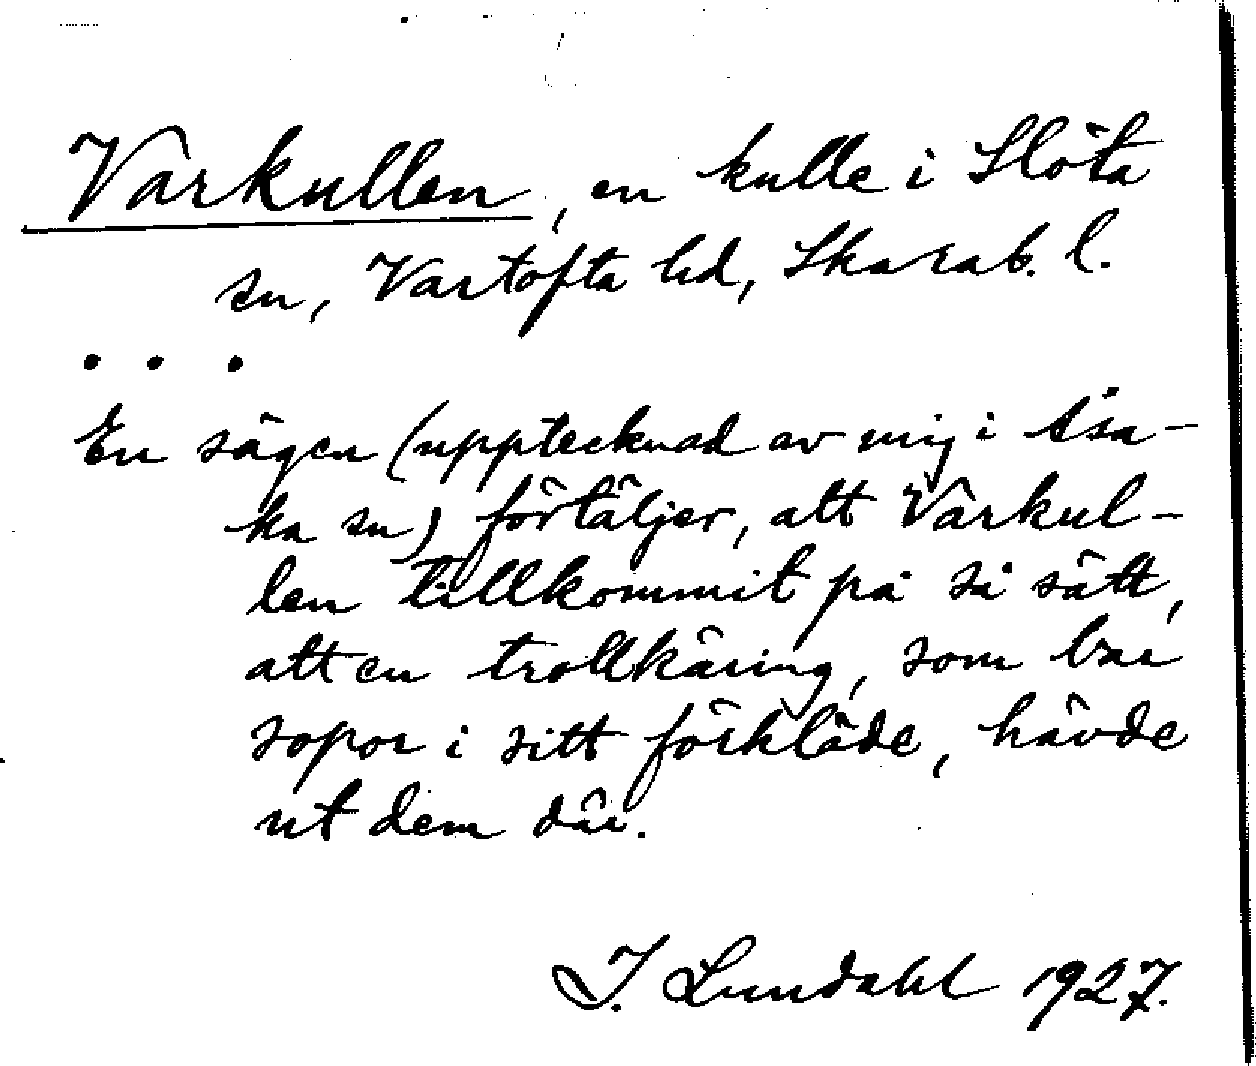 Värkullen, en kulle i Slöta
sn, Vartofta hd, Skarab. l.
. . .
En sägen (upptecknad av mig i Åsa-
ka sn) förtäljer, att Värkul-
len tillkommit på så sätt,
att en trollkäring, som bar
sopor i sitt förkläde, hävde
ut dem där.
I. Lundahl 1927.